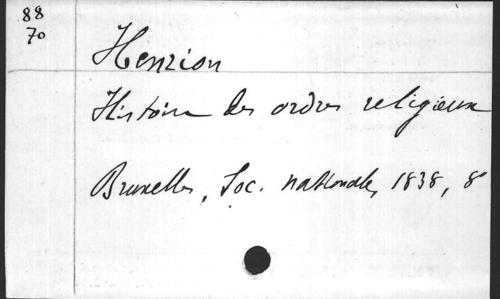 88
70
Henrion
Histoire des ordres religieux
Bruxelles, Soc. nationale, 1838, 8°